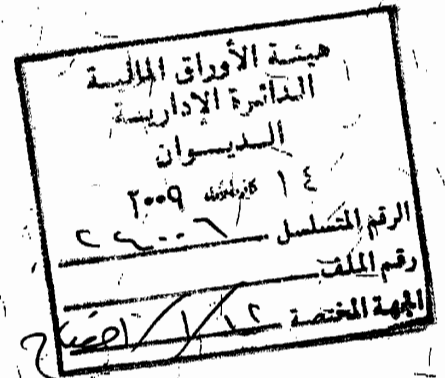 هيئة الأوراق المالية
الدائرة الإدارية
الديوان
١٤ ٢٠٠٩
الرقم المتسلسل
رقم الملف
الجهة المختصة ١/١٢